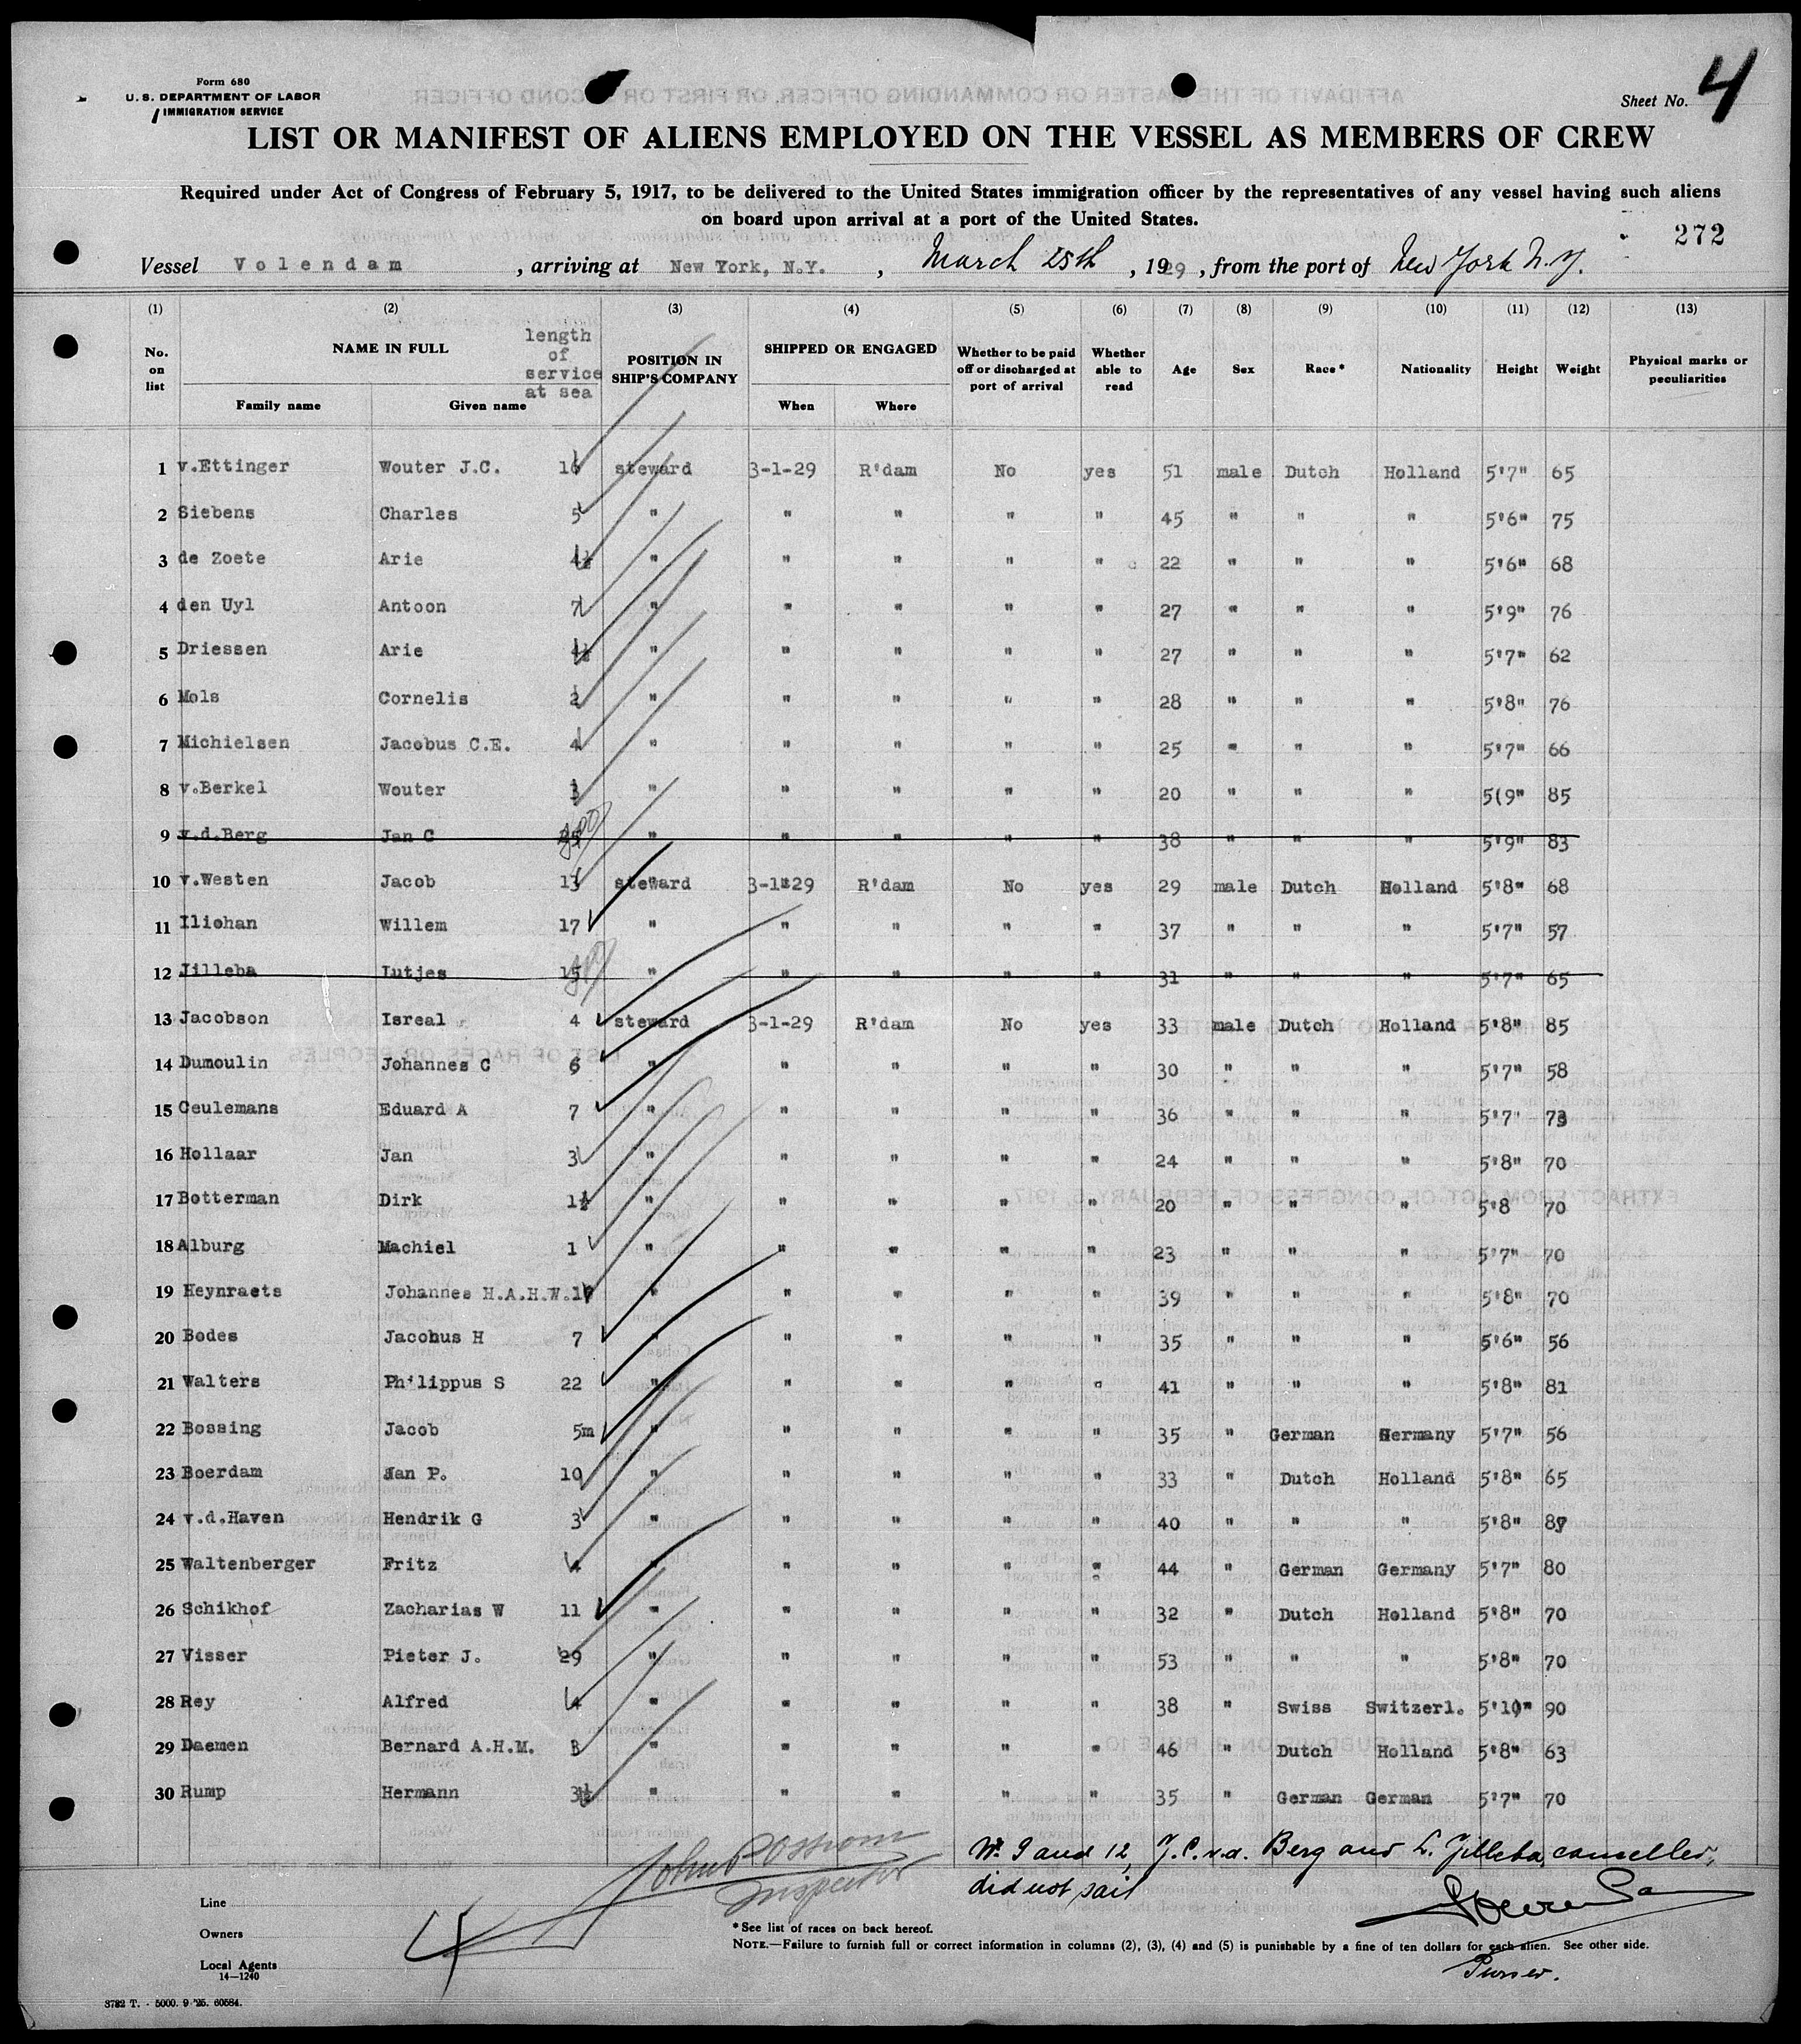 Form 680
U. S. DEPARTMENT OF LABOR
IMMIGRATION SERVICE
Sheet No. 4
LIST OR MANIFEST OF ALIENS EMPLOYED ON THE VESSEL AS MEMBERS OF CREW
Required under Act of Congress of February 5, 1917, to be delivered to the United States immigration officer by the representatives of any vessel having such aliens
on board upon arrival at a port of the United States.
272
Vessel Volendam , arriving at New York, N.Y. , March 25th , 1929 , from the port of New York N.Y.
(1) (2) (3) (4) (5) (6) (7) (8) (9) (10) (11) (12) (13)
No. on list NAME IN FULL Family name Given name length of service at sea POSITION IN SHIP'S COMPANY SHIPPED OR ENGAGED When Where Whether to be paid off or discharged at port of arrival Whether able to read Age Sex Race* Nationality Height Weight Physical marks or peculiarities
1 v.Ettinger Wouter J.C. 16 steward 3-1-29 R'dam No yes 51 male Dutch Holland 5'7" 65
2 Siebens Charles 5 " " " " " 45 " " " 5'6" 75
3 de Zoete Arie 4½ " " " " " 22 " " " 5'6" 68
4 den Uyl Antoon 7 " " " " " 27 " " " 5'9" 76
5 Driessen Arie 4½ " " " " " 27 " " " 5'7" 62
6 Mols Cornelis 2 " " " " " 28 " " " 5'8" 76
7 Michielsen Jacobus C.E. 4 " " " " " 25 " " " 5'7" 66
8 v.Berkel Wouter 3 " " " " " 20 " " " 5(9" 85
9 v.d.Berg Jan C " " " " " 38 " " " 5'9" 83
10 v.Westen Jacob 13 steward 3-1-29 R'dam No yes 29 male Dutch Holland 5'8" 68
11 Iliohan Willem 17 " " " " " 37 " " " 5'7" 57
12 Jilleba Lutjes 15 " " " " " 31 " " " 5'7" 65
13 Jacobson Isreal 4 steward 3-1-29 R'dam No yes 33 male Dutch Holland 5'8" 85
14 Dumoulin Johannes C 6 " " " " " 30 " " " 5'7" 58
15 Ceulemans Eduard A 7 " " " " " 36 " " " 5'7' 73
16 Hollaar Jan 3 " " " " " 24 " " " 5'8" 70
17 Botterman Dirk 1½ " " " " " 20 " " " 5'8 70
18 Alburg Machiel 1 " " " " " 23 " " " 5'7" 70
19 Heynraets Johannes H.A.H.W. " " " " " 39 " " " 5'8" 70
20 Bodes Jacobus H 7 " " " " " 35 " " " 5'6" 56
21 Walters Ph'lippus S 22 " " " " " 41 " " " 5'8" 81
22 Bossing Jacob 5m " " " " " 35 " German Germany 5'7" 56
23 Boerdam Jan P. 10 " " " " " 33 " Dutch Holland 5'8" 65
24 v.d.Haven Hendrik G 3 " " " " " 40 " " " 5'8"
25 Waltenberger Fritz 4 " " " " " 44 " German Germany 5'7" 80
26 Schikhof Zacharias W 11 " " " " " 32 " Dutch Holland 5'8" 70
27 Visser Pieter J. 29 " " " " " 53 " " " 5'8" 70
28 Rey Alfred 4 " " " " " 38 " Swiss Switzerl. 5'10" 90
29 Daemen Bernard A.H.M. " " " " " 46 " Dutch Holland 5'8" 63
30 Rump Hermann 3½ " " " " " 35 " German German 5'7" 70
Nr. 9 and 12, J.C.v.d. Berg and L. Jilleba, canceller,
did not sail
Inspector
Line
Owners
Local Agents
14—1240
4
*See list of races on back hereof.
NOTE.—Failure to furnish full or correct information in columns (2), (3), (4) and (5) is punishable by a fine of ten dollars for each alien. See other side.
Purser.
3782 T. - 5000. 9-'25. 60584.